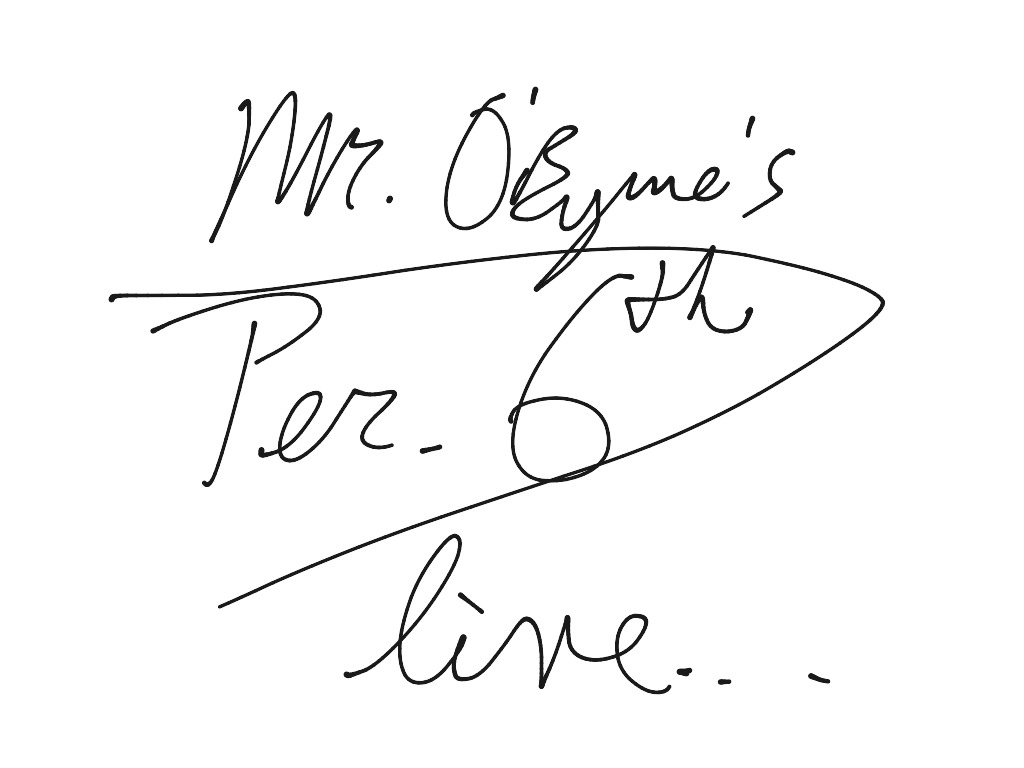 Mr. O'Byrne's
Per. 6th
live...